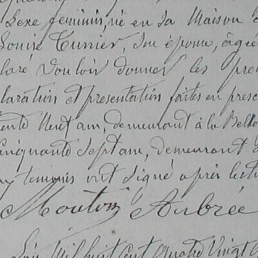 sexe féminin, né en sa Maison
Louise Currier, son épouse, âgée
claré vouloir donner les pré
claration et présentation faites en présen
trente Neuf ans, demeurant à la Belle
cinquante Sept ans, demeurant
témoins ont signé après lectu
Mouton Aubrée
L'an Mil huit cent quatre Vingt